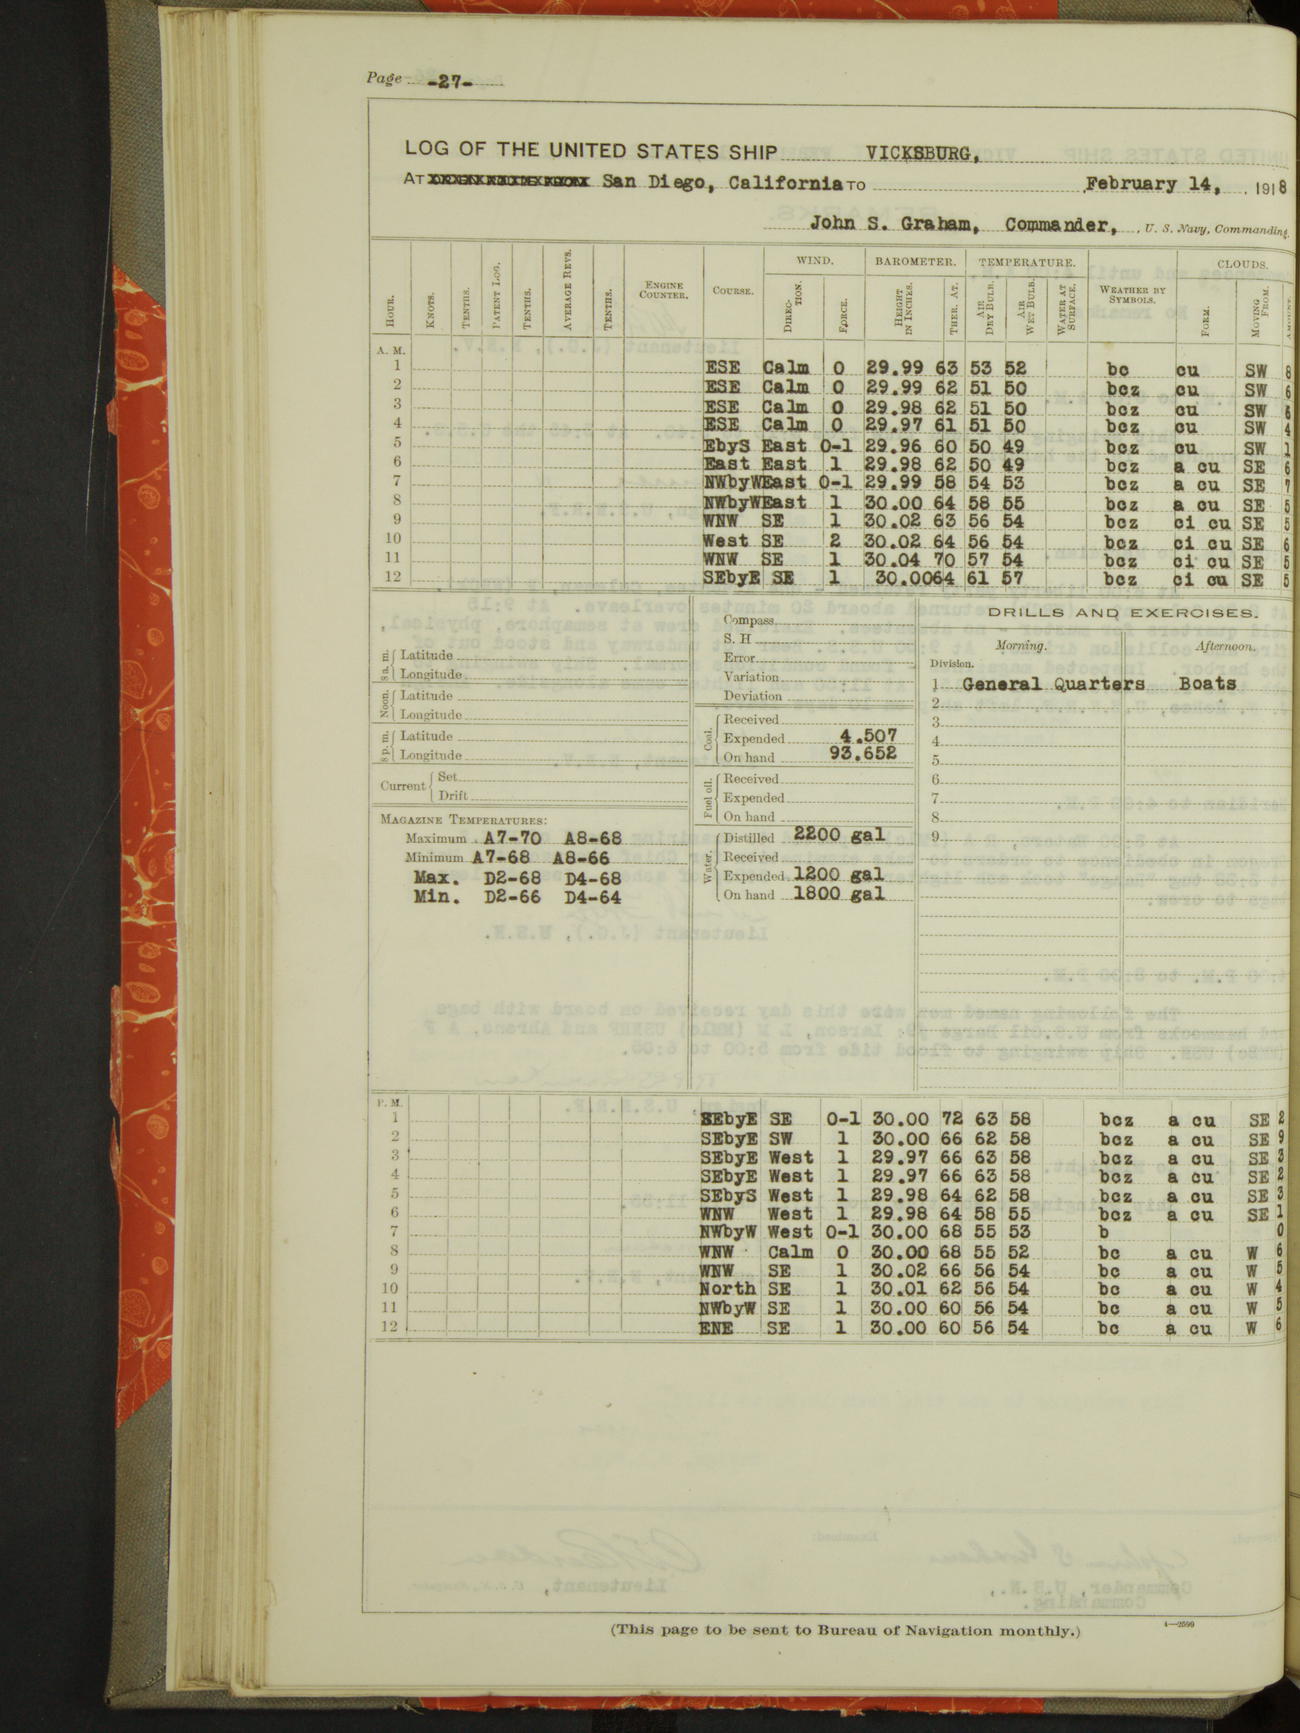 Page -27-
LOG OF THE UNITED STATES SHIP VICKSBURG,
AT San Diego, California TO February 14, 1918
John S. Graham, Commander, U. S. Navy, Commanding.
WIND. BAROMETER. TEMPERATURE. CLOUDS.
HOUR. KNOTS. TENTHS. PATENT LOG. TENTHS. AVERAGE REVS. TENTHS. ENGINE COUNTER. COURSE. DIRECTION. FORCE. HEIGHT IN INCHES. THER. AT. AIR DRY BULB. AIR WET BULB. WATER AT SURFACE. WEATHER BY SYMBOLS. FORM. MOVING FROM.
A. M.
1 ESE Calm 0 29.99 63 53 52 bc cu SW 8
2 ESE Calm 0 29.99 62 51 50 bcz cu SW 6
3 ESE Calm 0 29.98 62 51 50 bcz cu SW 6
4 ESE Calm 0 29.97 61 51 50 bcz cu SW 4
5 EbyS East 0-1 29.96 60 50 49 bcz cu SW 1
6 East East 1 29.98 62 50 49 bcz a cu SE 6
7 NWbyW East 0-1 29.99 58 54 53 bcz a cu SE 7
8 NWbyW East 1 30.00 64 58 55 bcz a cu SE 5
9 WNW SE 1 30.02 63 56 54 bcz ci cu SE 5
10 West SE 2 30.02 64 56 54 bcz ci cu SE 6
11 WNW SE 1 30.04 70 57 54 bcz ci cu SE 5
12 SEbyE SE 1 30.00 64 61 57 bcz ci cu SE 5
8 a. m. Latitude
Longitude
Noon. Latitude
Longitude
8 p. m. Latitude
Longitude
Current Set
Drift
MAGAZINE TEMPERATURES:
Maximum A7-70 A8-68
Minimum A7-68 A8-66
Max. D2-68 D4-68
Min. D2-66 D4-64
Compass
S. H
Error
Variation
Deviation
Coal. Received
Expended 4.507
On hand 93.652
Fuel oil. Received
Expended
On hand
Water. Distilled 2200 gal
Received
Expended 1200 gal
On hand 1800 gal
DRILLS AND EXERCISES.
Morning. Afternoon.
Division.
1 General Quarters Boats
2
3
4
5
6
7
8
9
P. M.
1 SEbyE SE 0-1 30.00 72 63 58 bcz a cu SE 2
2 SEbyE SW 1 30.00 66 62 58 bcz a cu SE 9
3 SEbyE West 1 29.97 66 63 58 bcz a cu SE 3
4 SEbyE West 1 29.97 66 63 58 bcz a cu SE 2
5 SEbyS West 1 29.98 64 62 58 bcz a cu SE 3
6 WNW West 1 29.98 64 58 55 bcz a cu SE 1
7 NWbyW West 0-1 30.00 68 55 53 b 0
8 WNW Calm 0 30.00 68 55 52 bc a cu W 6
9 WNW SE 1 30.02 66 56 54 bc a cu W 5
10 North SE 1 30.01 62 56 54 bc a cu W 4
11 NWbyW SE 1 30.00 60 56 54 bc a cu W 5
12 ENE SE 1 30.00 60 56 54 bc a cu W 6
(This page to be sent to Bureau of Navigation monthly.)
4—2599